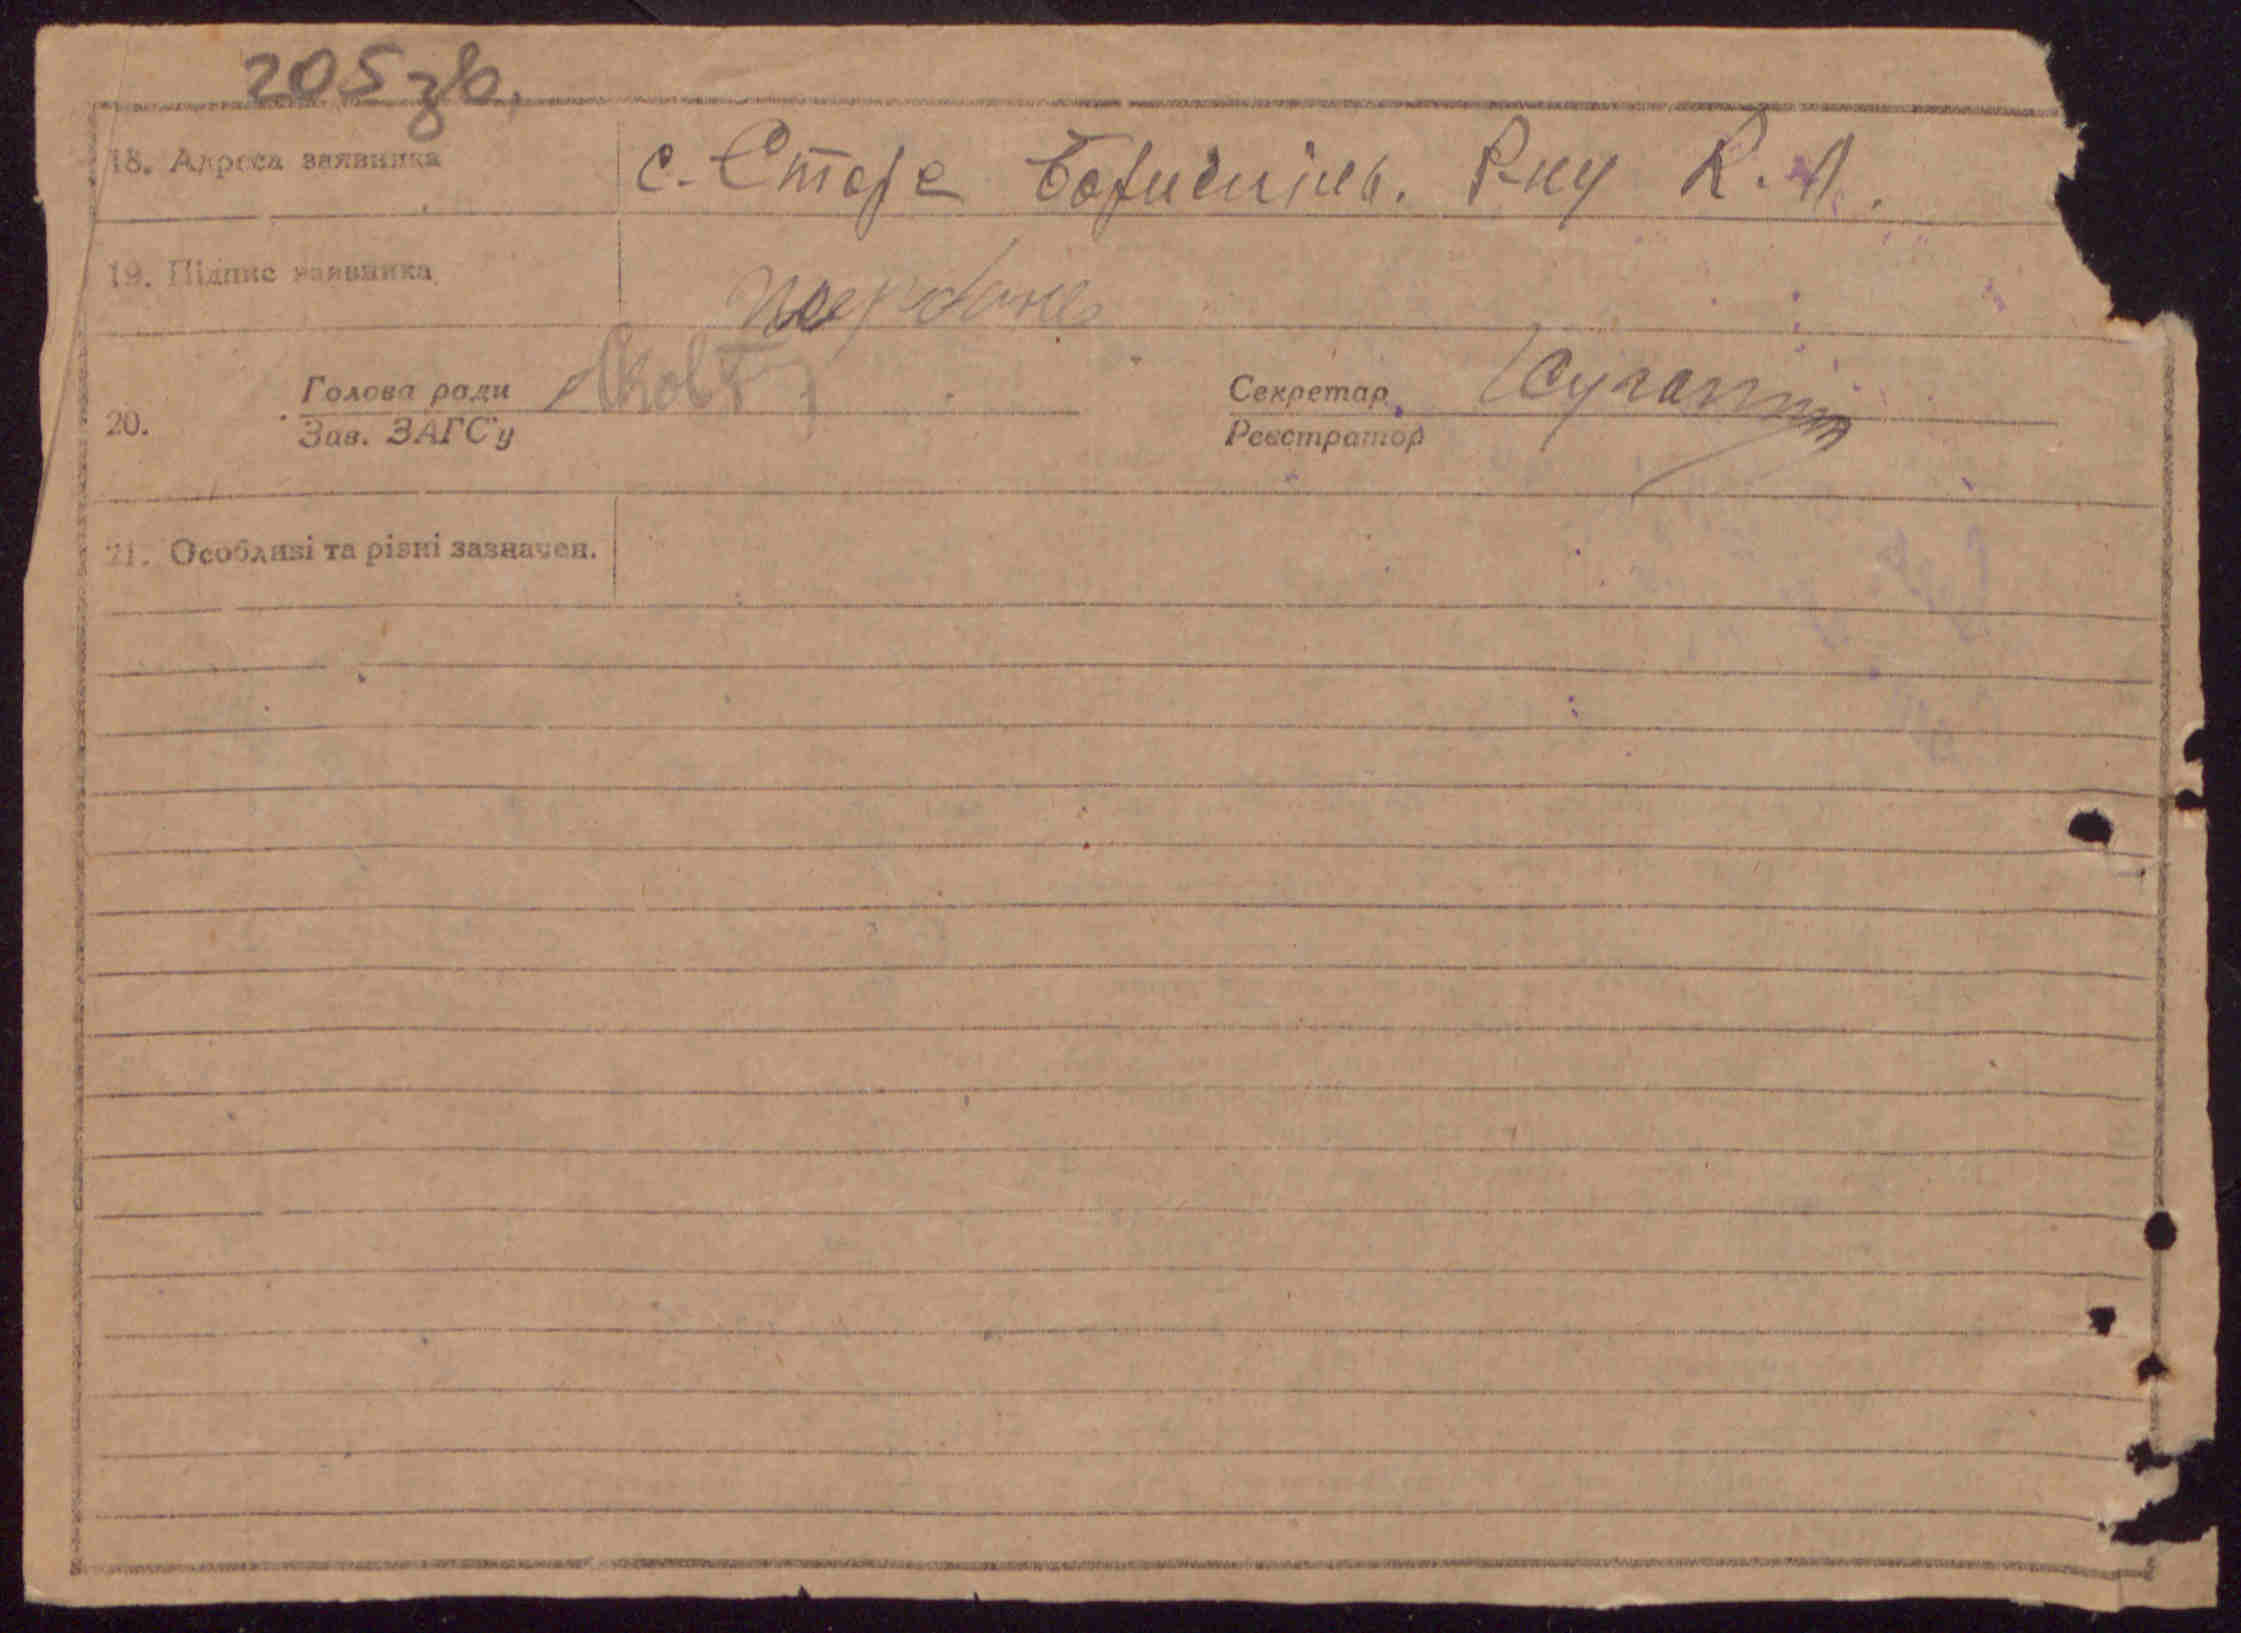 205 зв.
18. Адреса заявника с. Старе Бориспіль. Р-ну К. О.
19. Підпис заявника
20. Голова ради Секретар
Зав. ЗАГС'у Реєстратор
21. Особливі та різні зазначен.